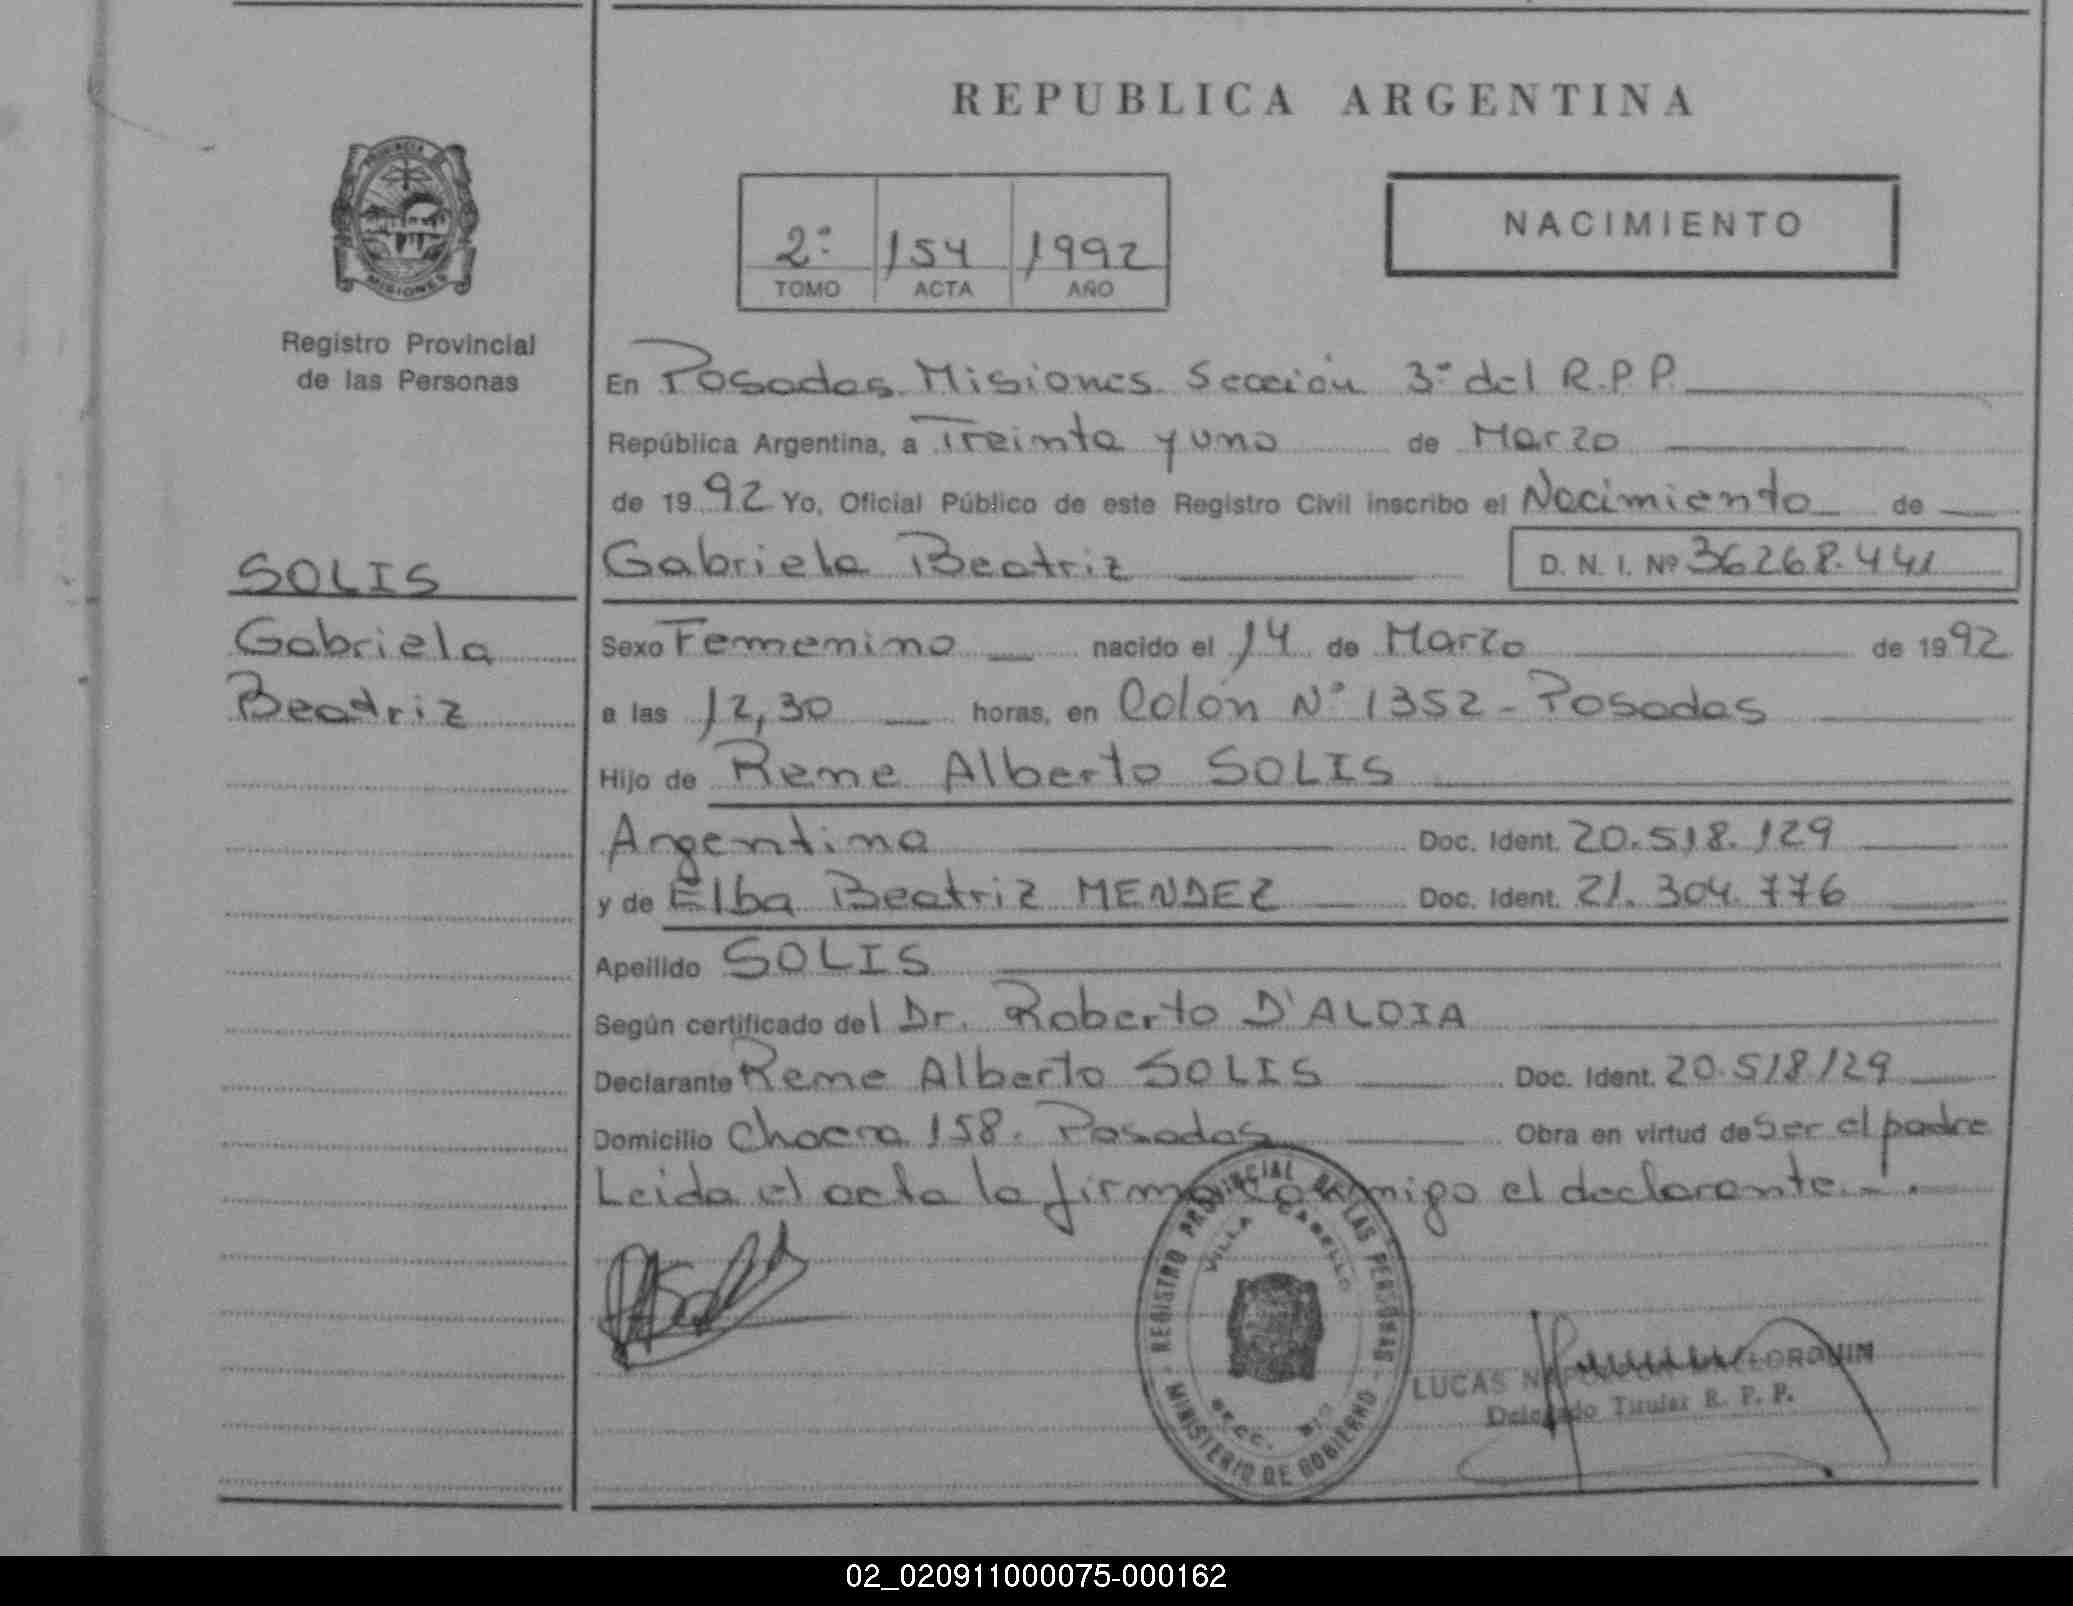 REPUBLICA ARGENTINA
PROVINCIA
MISIONES
Registro Provincial
de las Personas
2º 154 1992
TOMO ACTA AÑO
NACIMIENTO
En Posadas Misiones Sección 3º del R.P.P.
República Argentina, a Treinta y uno de Marzo
de 1992 Yo, Oficial Público de este Registro Civil inscribo el Nacimiento de
SOLIS
Gabriela
Beatriz
Gabriela Beatriz D. N. I. Nº 36268.441
Sexo Femenino nacido el 14 de Marzo de 1992
a las 12,30 horas, en Colón Nº 1352 - Posadas
Hijo de Rene Alberto SOLIS
Argentino Doc. Ident. 20.518.129
y de Elba Beatriz MENDEZ Doc. Ident. 21.304.776
Apellido SOLIS
Según certificado del Dr. Roberto D'ALOIA
Declarante Rene Alberto SOLIS Doc. Ident. 20.518129
Domicilio Chacra 158. Posadas Obra en virtud de Ser el padre
Leida el acta la firma conmigo el declarante.-.
REGISTRO PROVINCIAL DE LAS PERSONAS
VILLA CABELLO
SECC.
MINISTERIO DE GOBIERNO
LUCAS
Delegado Titular R. P. P.
02_020911000075-000162